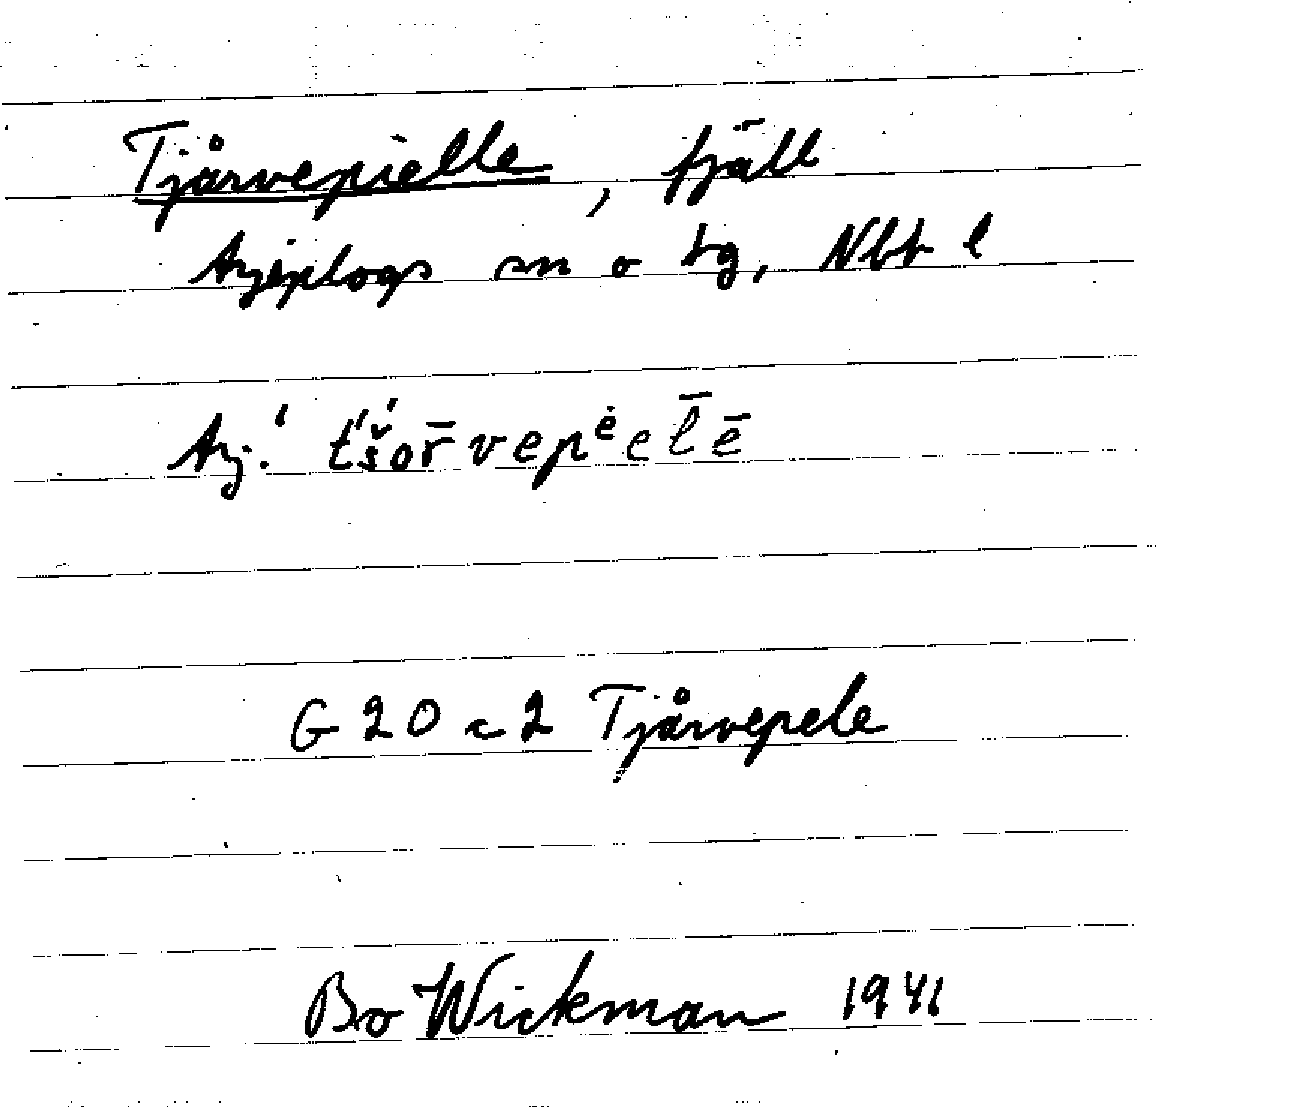 Tjårvepielle, fjäll
Arjeplogs sn o tg, Nbt l
Arj.
G 20 c 2 Tjårvepele
Bo Wickman 1941